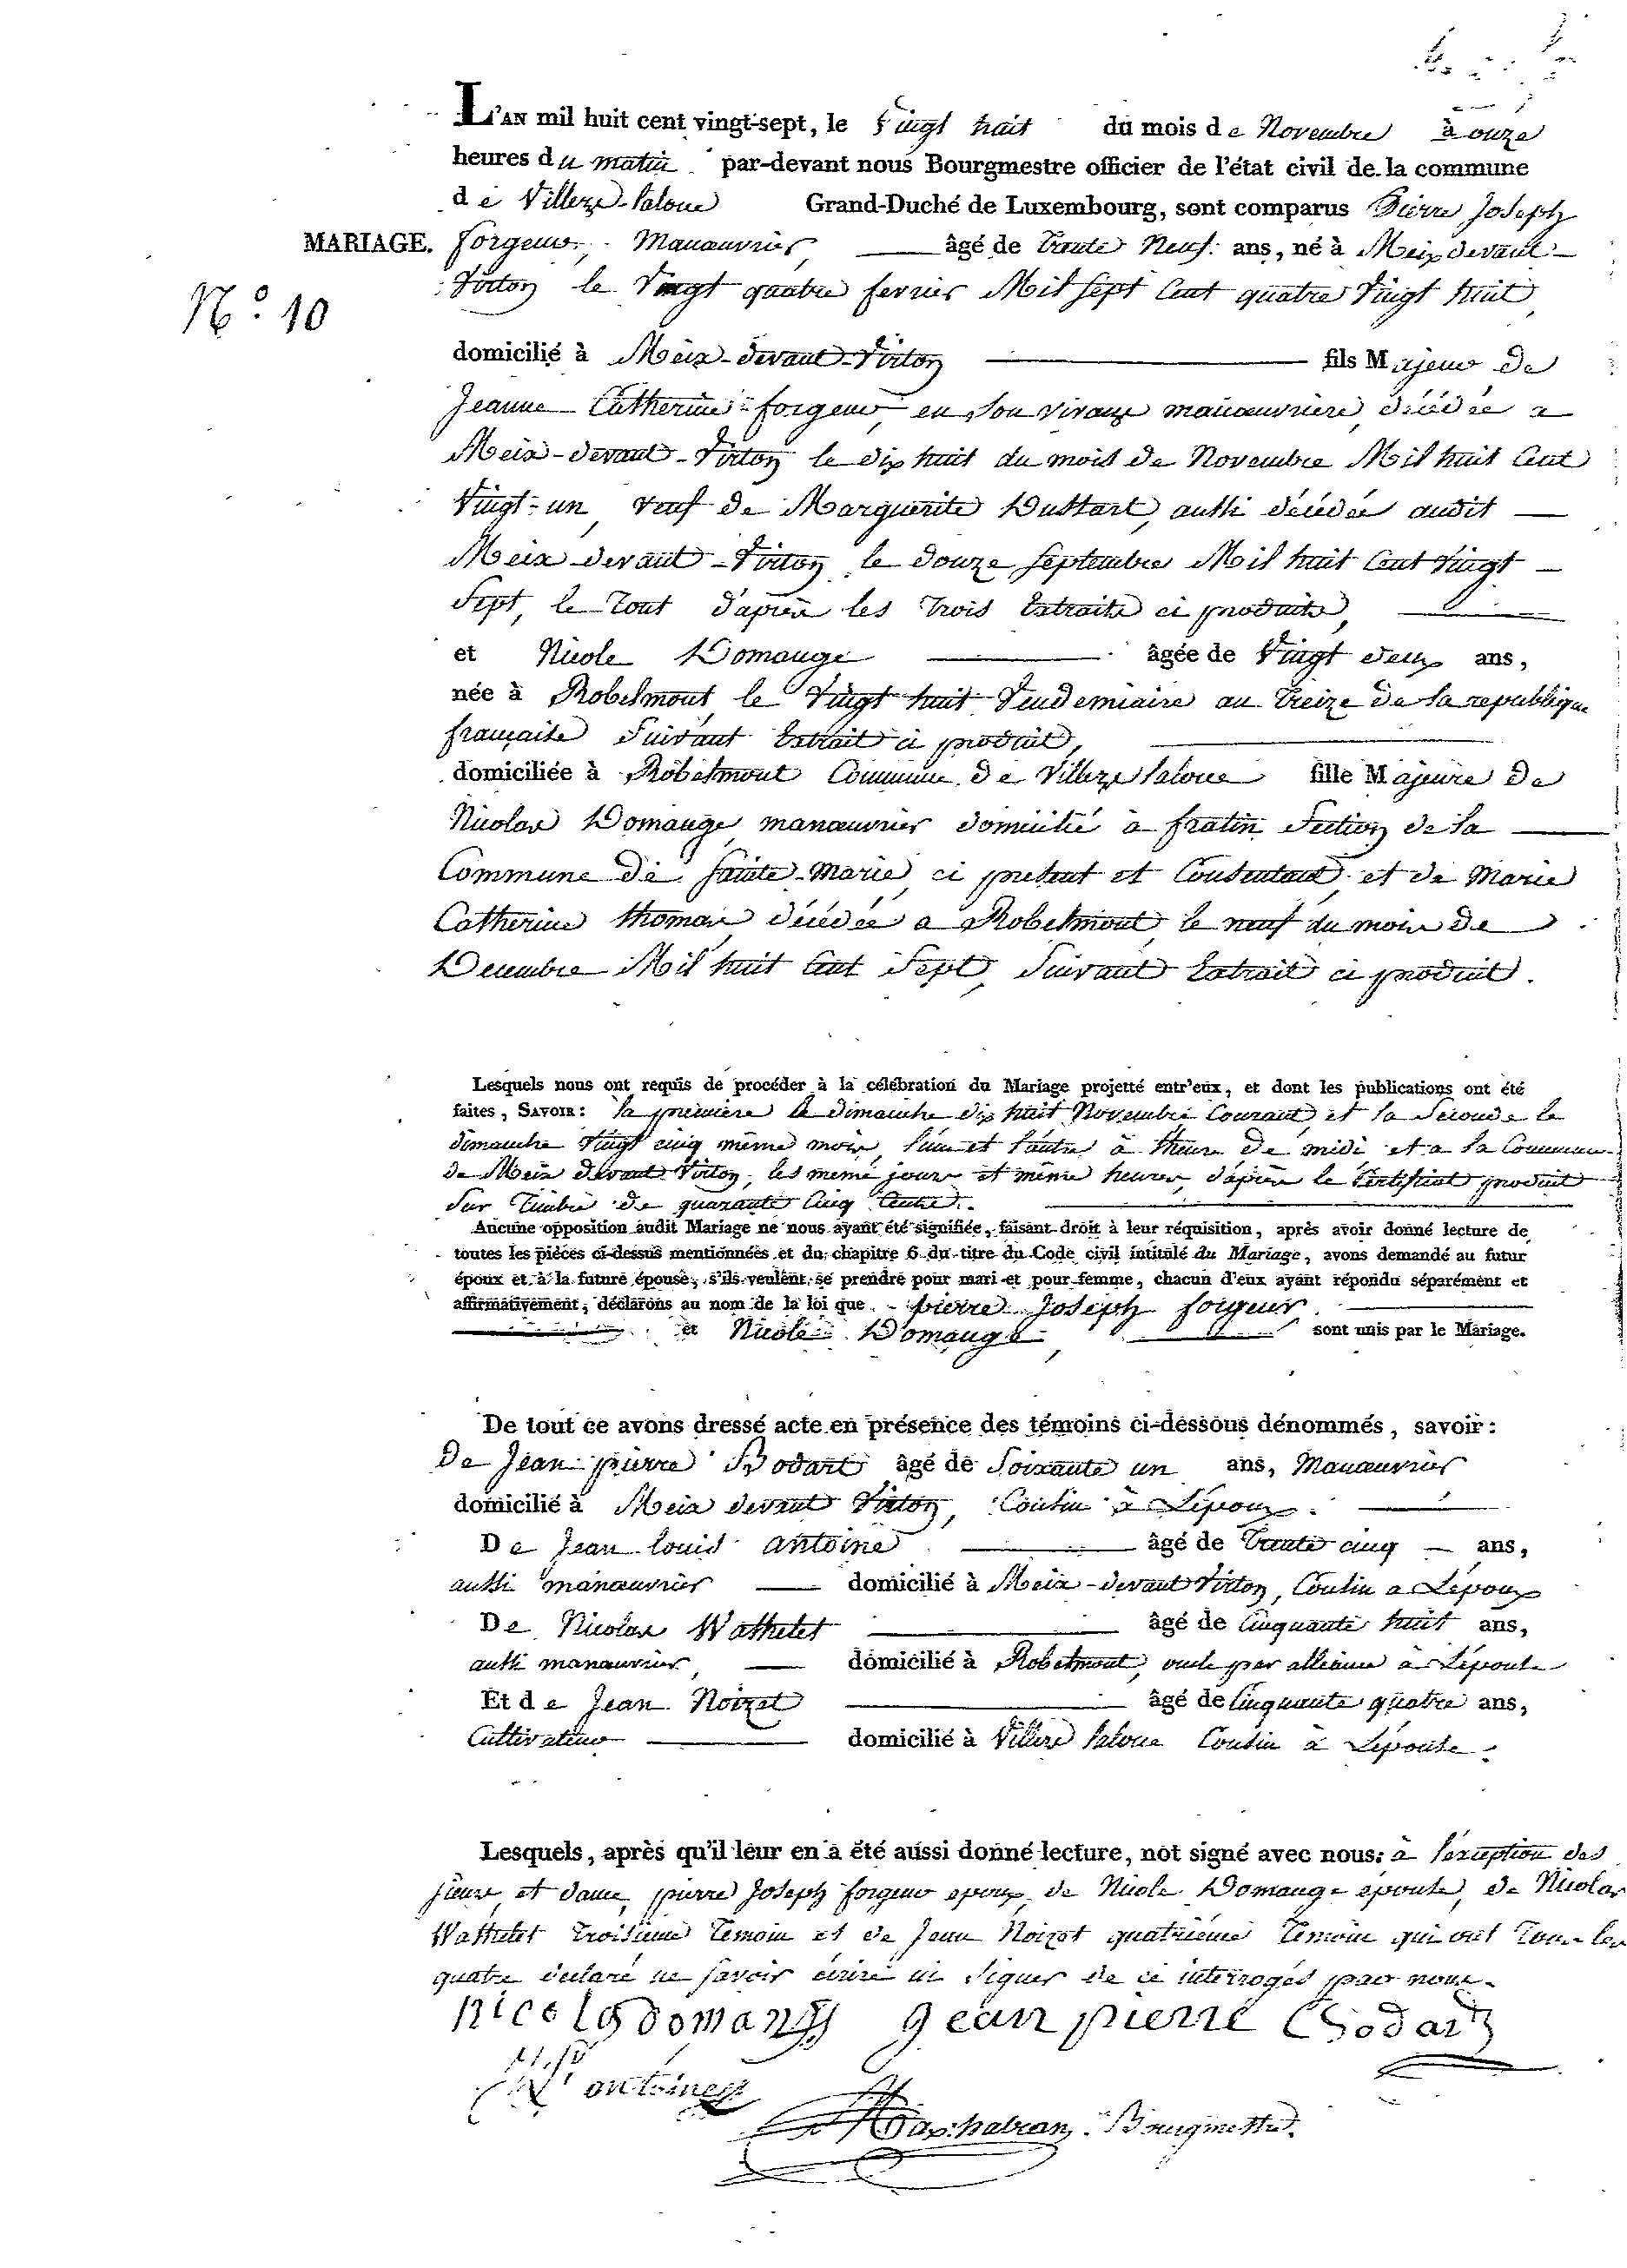 L'AN mil huit cent vingt-sept, le vingt huit du mois de Novembre à onze
heures du matin par-devant nous Bourgmestre officier de l'état civil de la commune
de Villers-laloue Grand-Duché de Luxembourg, sont comparus Pierre Joseph
MARIAGE. forgeur, Manœuvrier, âgé de trente Neuf ans, né à Meix devant
N.º 10
Virton le Vingt quatre fevrier Mil Sept Cent quatre Vingt huit,
domicilié à Meix-devant-Virton fils Majeur de
Jeanne Catherine forgeur, en son vivant manœuvriere, décédée a
Meix-devant-Virton le dix huit du mois de Novembre Mil huit Cent
Vingt-un, veuf de Marguerite Dussart, aussi décédée audit
Meix devant-Virton, le douze Septembre Mil huit Cent Vingt
Sept, le Tout d'après les trois Extraits ci produits,
et Nicole Domange âgée de Vingt deux ans,
née à Robelmont le Vingt huit Vendemiaire an treize de la republique
française Suivant Extrait ci produit,
domiciliée à Robelmont Commune de Villers laloue fille Majeure de
Nicolas Domange, manœuvrier domicilié à fratin Section de la
Commune de Sainte-Marie, ci présent et Consentant, et de Marie
Catherine thomas décédée a Robelmont, le neuf du mois de
Decembre Mil huit Cent Sept, Suivant Extrait ci produit.
Lesquels nous ont requis de procéder à la célébration du Mariage projetté entr'eux, et dont les publications ont été
faites, SAVOIR: la premiere le dimanche dix huit Novembre Courant, et la Seconde le
dimanche Vingt cinq même mois, l'un et l'autre à l'heure de midi et a la Commune
de Meix devant Virton, les meme jours et même heures, d'après le Certificat produit
Sur Timbre de quarante Cinq Cents.
Aucune opposition audit Mariage ne nous ayant été signifiée, faisant droit à leur réquisition, après avoir donné lecture de
toutes les pièces ci-dessus mentionnées et du chapitre 6 du titre du Code civil intitulé du Mariage, avons demandé au futur
époux et à la future épouse, s'ils veulent se prendre pour mari et pour femme, chacun d'eux ayant répondu séparément et
affirmativement, déclarons au nom de la loi que pierre Joseph forgeur
et Nicole Domange sont unis par le Mariage.
De tout ce avons dressé acte en présence des témoins ci-dessous dénommés, savoir:
De Jean pierre Bodart âgé de Soixante un ans, Manœuvrier
domicilié à Meix devant Virton, Cousin à L'époux.
De Jean louis antoine âgé de trente cinq ans,
aussi manœuvrier domicilié à Meix-devant Virton, Cousin a L'époux
De Nicolas Wathelet âgé de Cinquante huit ans,
aussi manœuvrier, domicilié à Robelmont, oncle par alliance à L'épouse
Et de Jean Noizet âgé de Cinquante quatre ans,
Cultivateur domicilié à Villers laloue Cousin à L'épouse.
Lesquels, après qu'il leur en a été aussi donné lecture, not signé avec nous: à l'exception des
Sieur et dame, pierre Joseph forgeur epoux, de Nicole Domange épouse, de Nicolas
Wathelet troisieme Temoin et de Jean Noizet quatrième Temoin qui ont Tous les
quatre declaré ne Savoir écrire ni Signer de ce interrogés par nous.
nicolas domange jean pierre Bodart
antoine
Bourgmestre.